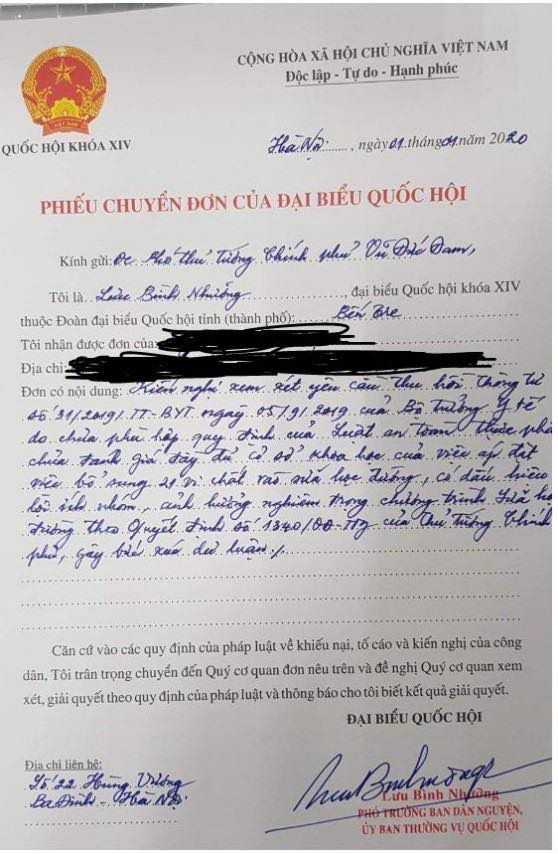 CỘNG HÒA XÃ HỘI CHỦ NGHĨA VIỆT NAM
Độc lập - Tự do - Hạnh phúc
QUỐC HỘI KHÓA XIV
Hà Nội......, ngày 01 tháng 04 năm 2020
PHIẾU CHUYỂN ĐƠN CỦA ĐẠI BIỂU QUỐC HỘI
Kính gửi: Đc Phó thủ tướng Chính phủ Vũ Đức Đam,
Tôi là Lưu Bình Nhưỡng, đại biểu Quốc hội khóa XIV
thuộc Đoàn đại biểu Quốc hội tỉnh (thành phố): Bến Tre
Tôi nhận được đơn của:
Địa chỉ:
Đơn có nội dung: Kiến nghị xem xét yêu cầu thu hồi thông tư
số 31/2019/TT-BYT ngày 05/9/2019 của Bộ trưởng Y tế
do chưa phù hợp quy định của Luật an toàn thực phẩ
chưa đánh giá đầy đủ cơ sở khoa học của việc áp đặt
việc bổ sung 21 vi chất vào sữa học đường, có dấu hiệu
lợi ích nhóm, ảnh hưởng nghiêm trọng chương trình Sữa họ
đường theo Quyết định số 1340/QĐ-TTg của Thủ tướng Chính
phủ, gây bức xúc dư luận./.
Căn cứ vào các quy định của pháp luật về khiếu nại, tố cáo và kiến nghị của công
dân, Tôi trân trọng chuyển đến Quý cơ quan đơn nêu trên và đề nghị Quý cơ quan xem
xét, giải quyết theo quy định của pháp luật và thông báo cho tôi biết kết quả giải quyết.
ĐẠI BIỂU QUỐC HỘI
Địa chỉ liên hệ:
Số 22 Hùng Vương
Ba Đình - Hà Nội
Lưu Bình Nhưỡng
PHÓ TRƯỞNG BAN DÂN NGUYỆN,
ỦY BAN THƯỜNG VỤ QUỐC HỘI